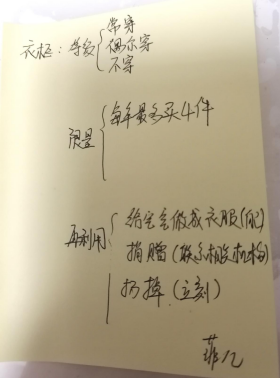 常穿
衣柜：等级 偶尔穿
不穿
限量 每年最多买4件
再利用 给宝宝做成衣服(服)
捐赠(联系相关机构)
扔掉(立刻)
菲几